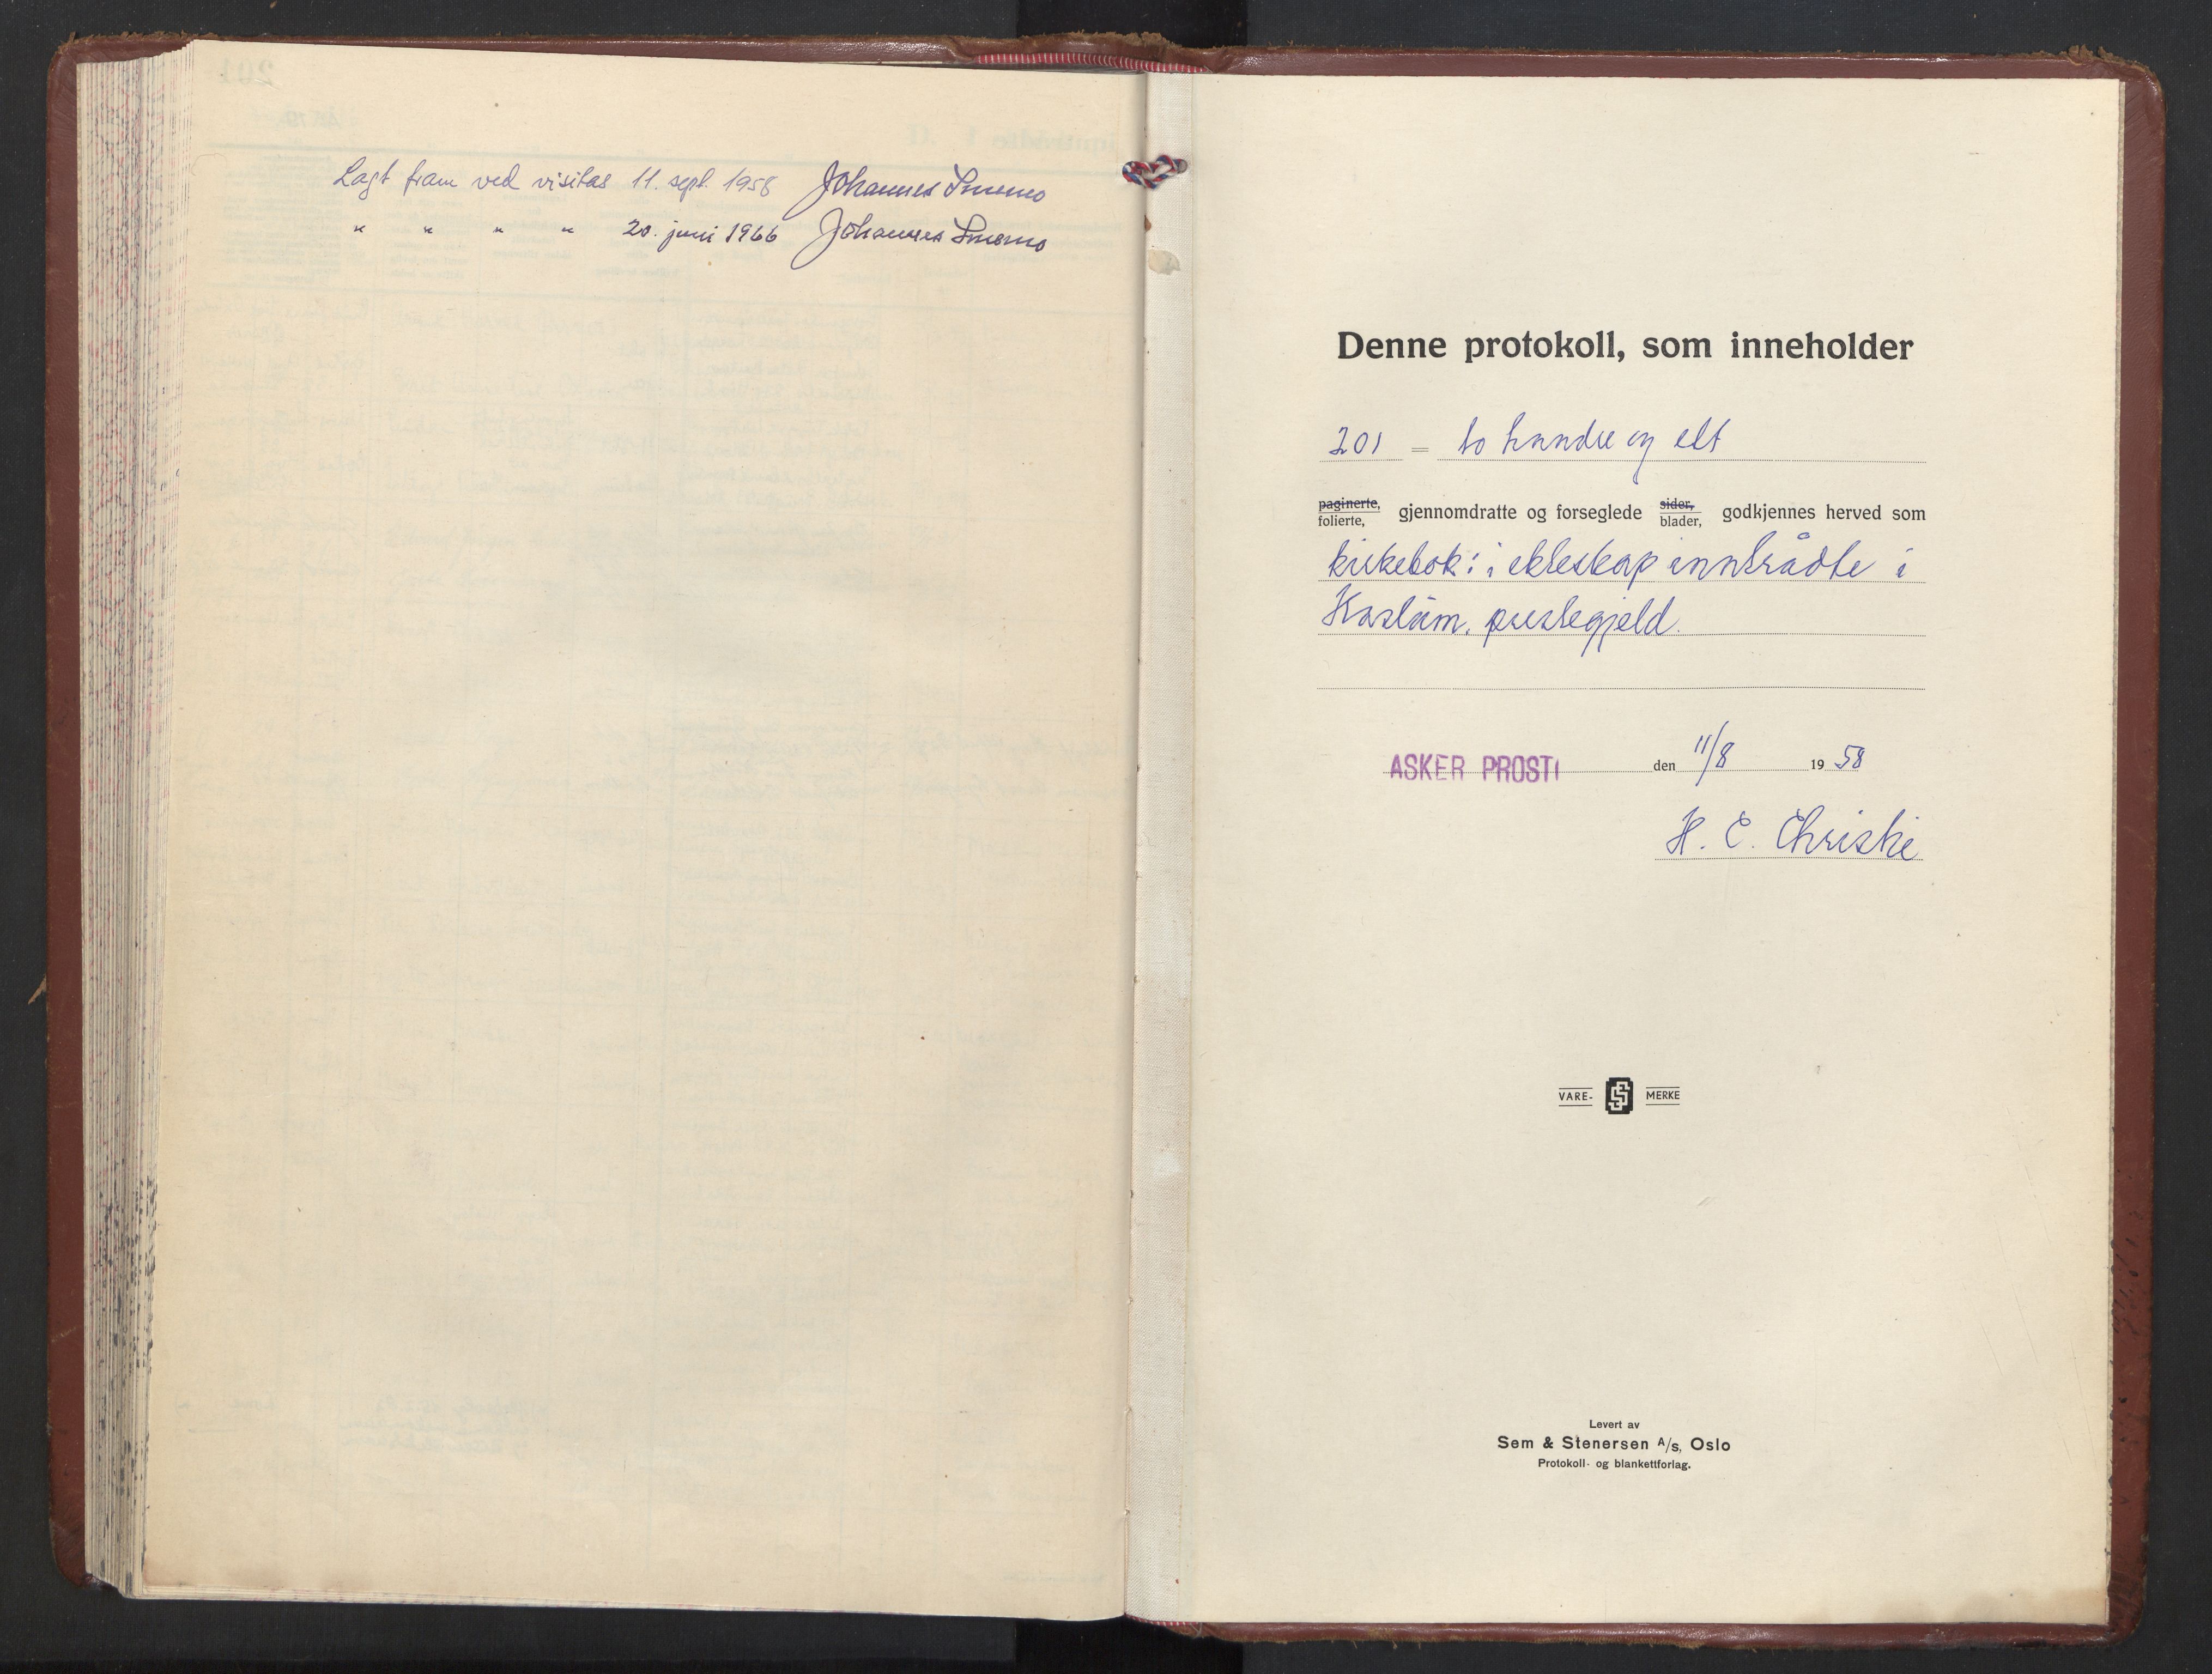 Lagt fram ved visitas 11. sept. 1958 Johannes Smemo
" " " " 20. juni 1966 Johannes Smemo
Denne protokoll, som inneholder
201 = to hundre og ett
paginerte, folierte, gjennomdratte og forseglede sider, blader, godkjennes herved som
kirkebok: i ekteskap inntrådte i
Haslum prestegjeld.
ASKER PROSTI den 11/8 1958
H. C. Christie
VARE- MERKE
Levert av
Sem & Stenersen A/s, Oslo
Protokoll- og blankettforlag.